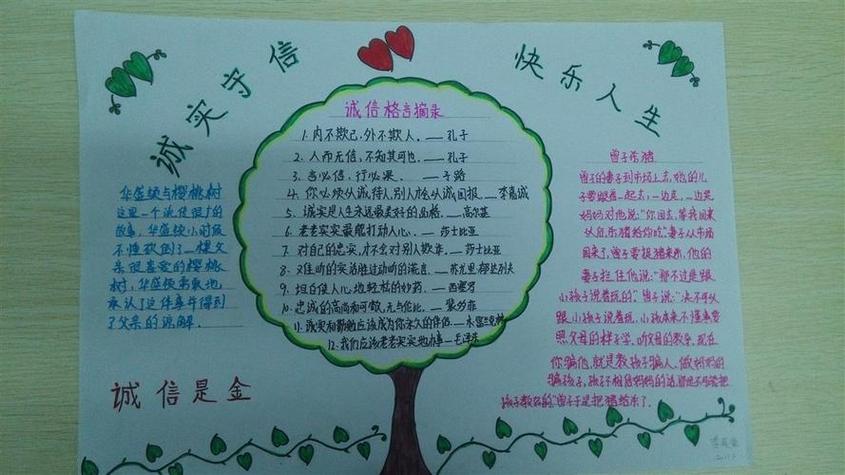 诚实守信
快乐人生
诚信格言摘录
1. 内不欺己,外不欺人。——孔子
2. 人而无信,不知其可也。——孔子
3. 言必信,行必果。——子路
4. 你必须以诚待人,别人才会以诚回报。——李嘉诚
5. 诚实是人生永远最美好的品格。——高尔基
6. 老老实实最能打动人心。——莎士比亚
7. 对自己的忠实,才不会对别人欺诈。——莎士比亚
8. 难听的实话胜过动听的谎言。——苏尤里·柳兰列夫
9. 坦白使人心地轻松的妙药。——西塞罗
10. 忠诚的高尚和可敬,无与伦比。——
11. 诚实和勤勉应该成为你永久的伴侣。——
12. 我们应该老老实实地办事——毛泽东
华盛顿与樱桃树
这是一个流传很广的
故事,华盛顿小时候
不懂砍倒了一棵父
亲很喜爱的樱桃
树,华盛顿勇敢地
承认了这件事并得到
了父亲的谅解.
诚信是金
曾子杀猪
曾子的妻子到市场上去,她的儿
子要跟着一起去,一边走,一边哭
妈妈对他说:“你回去,等我回来
以后,杀猪给你吃”妻子从市场
回来了,曾子要捉猪来杀,他的
妻子拦住他说:“那不过是跟
小孩子说着玩的”.曾子说:“决不可以
跟小孩子说着玩,小孩本来不懂事,要
照父母的样子学,听父母的教导,现在
你骗他,就是教孩子骗人,做妈妈的
骗孩子,孩子不相信妈妈的话,那是不可能把
孩子教好的”曾子于是把猪给杀了.